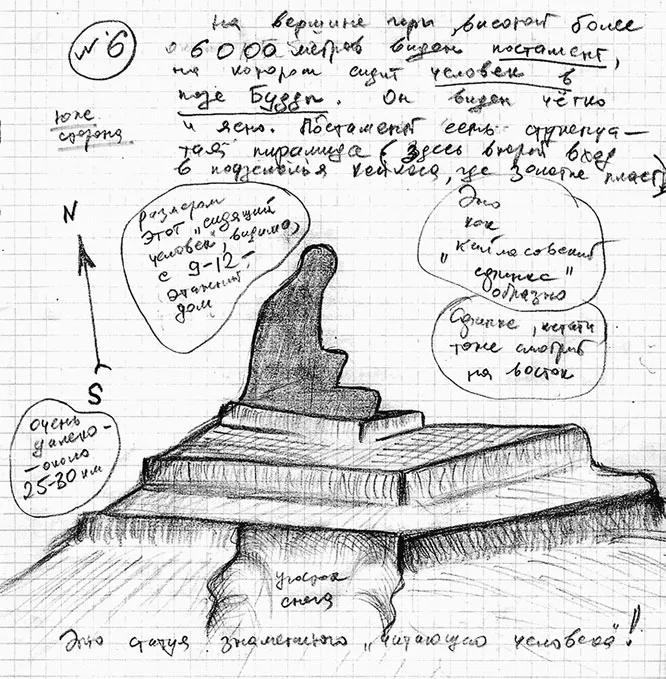 №6
На вершине горы, высотой более
6000 метров виден постамент,
на котором сидит человек в
позе Будды. Он виден чётко
и ясно. Постамент есть ступенча-
тая пирамида (здесь второй вход
в подземелья Кайласа, где золотые пласт)
юж.
сторона
N
S
размером
этот "сидящий
человек", видимо,
с 9-12-
этажный
дом
Это
как
"Кайласовский
сфинкс"
образно
Сфинкс, кстати
тоже смотрит
на восток
очень
далеко -
- около
25-30 км
участок
снега
Это статуя знаменитого "читающего человека"!